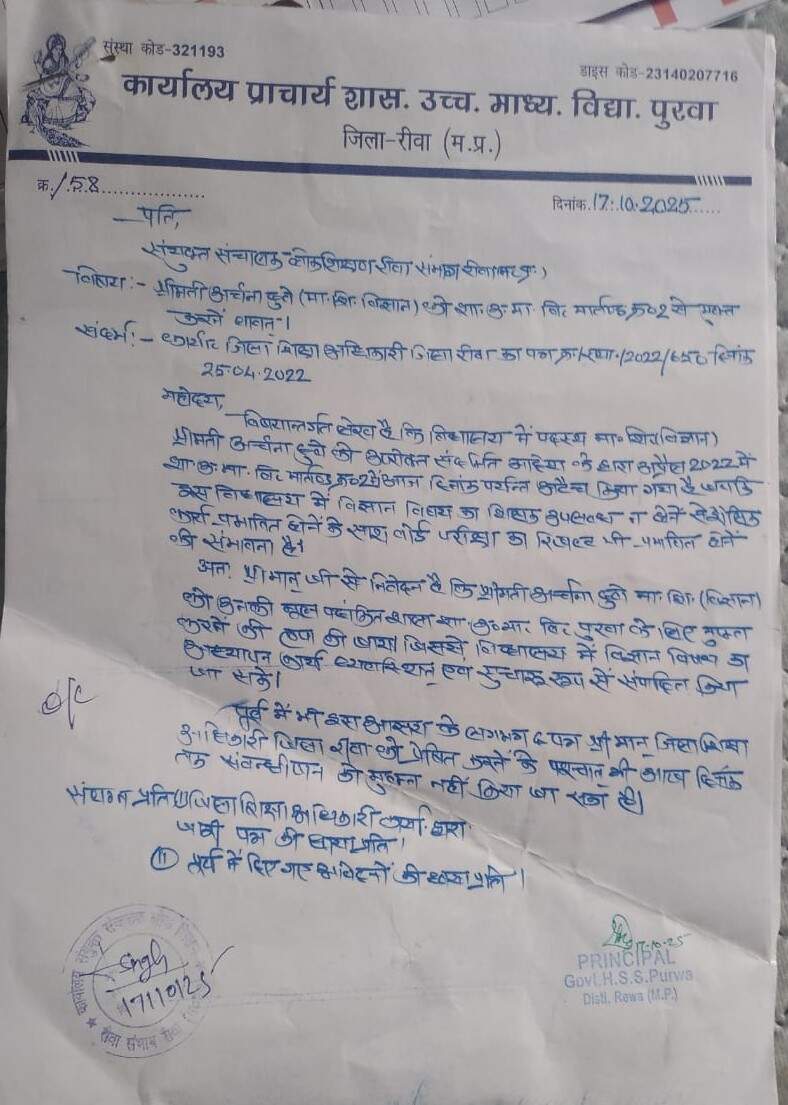 संस्था कोड-321193
डाइस कोड-23140207716
कार्यालय प्राचार्य शास. उच्च. माध्य. विद्या. पुरवा
जिला-रीवा (म.प्र.)
क्र./58
दिनांक.17.10.2025
प्रति,
संयुक्त संचालक लोकशिक्षण रीवा संभाग रीवा
विषय:- श्रीमती अर्चना दुबे (मा.शि. विज्ञान) को शा.उ.मा. वि. मार्तण्ड क्र02 से मुक्त
करने बावत्।
संदर्भ:- कार्या. जिला शिक्षा अधिकारी जिला रीवा का पत्र क्र./स्था./2022/650 दिनांक
25.04.2022
महोदय,
विषयान्तर्गत लेख है कि विद्यालय में पदस्थ मा.शि(विज्ञान)
श्रीमती अर्चना दुबे को उपरोक्त संदर्भित आदेश के द्वारा अप्रैल 2022 में
शा.उ.मा. वि. मार्तण्ड क्र.02 में आज दिनांक पर्यन्त अटैच किया गया है जबकि
इस विद्यालय में विज्ञान विषय का शिक्षक उपलब्ध न होने से शैक्षिक
कार्य प्रभावित होनें के साथ बोर्ड परीक्षा का रिजल्ट भी प्रभावित होनें
की संभावना है।
अतः श्रीमान् जी से निवेदन है कि श्रीमती अर्चना दुबे मा. शि. (विज्ञान)
को उनकी मूल पदांकित शाला शा. उ. मा. वि. पुरवा के लिए मुक्त
करनें की कृपा की जाय। जिससे विद्यालय में विज्ञान विषय का
अध्यापन कार्य व्यवस्थित एवं सुचारू रूप से संपादित किया
जा सके।
o/c
पूर्व में भी इस आशय के लगभग 6 पत्र श्री मान् जिला शिक्षा
अधिकारी जिला रीवा को प्रेषित करने के पश्चात् भी आज दिनांक
तक संबन्धीजन को मुक्त नहीं किया जा सका है।
संलग्न प्रति ① जिला शिक्षा अधिकारी कार्या. द्वारा
जारी पत्र की छायाप्रति।
⑪ पूर्व में दिए गए आवेदनों की छाया प्रति।
17.10.25
PRINCIPAL
Govt.H.S.S.Purwa
Distt. Rewa (M.P.)
Singh
17/10/25
रीवा संभाग रीवा